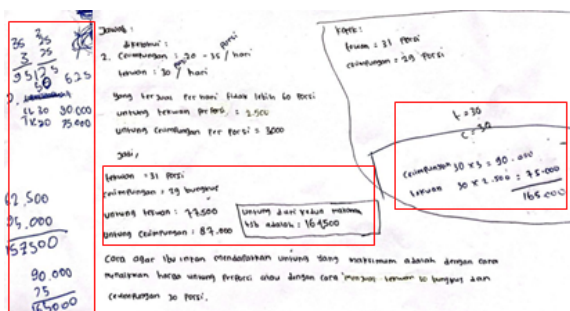 35 35
3 25
95 125
50 625
CC 30 90.000
TK 30 75.000
62.500
95.000
157500
90.000
75
165000
Jawab :
diketahui :
2. Cecimpungan : 20 - 35 porsi / hari
tekwan : 30 porsi / hari
yang terjual per hari tidak lebih 60 porsi
untung tekwan perporsi : 2.500
untung cecimpungan per porsi = 3000
Jadi,
tekwan = 31 porsi
cecimpungan = 29 bungkus
untung tekwan : 77.500
untung cecimpungan : 87.000
untung dari kedua makanan
tsb adalah : 164500
Cara agar ibu intan mendapatkan untung yang maksimum adalah dengan cara
menaikkan harga untung perporsi atau dengan cara menjual tekwan 30 bungkus dan
cecimpungan 30 porsi.
tekwan = 31 porsi
cecimpungan = 29 porsi
t = 30
c = 30
cecimpungan 30 x 3 = 90.000
tekwan 30 x 2.500 = 75.000
165.000